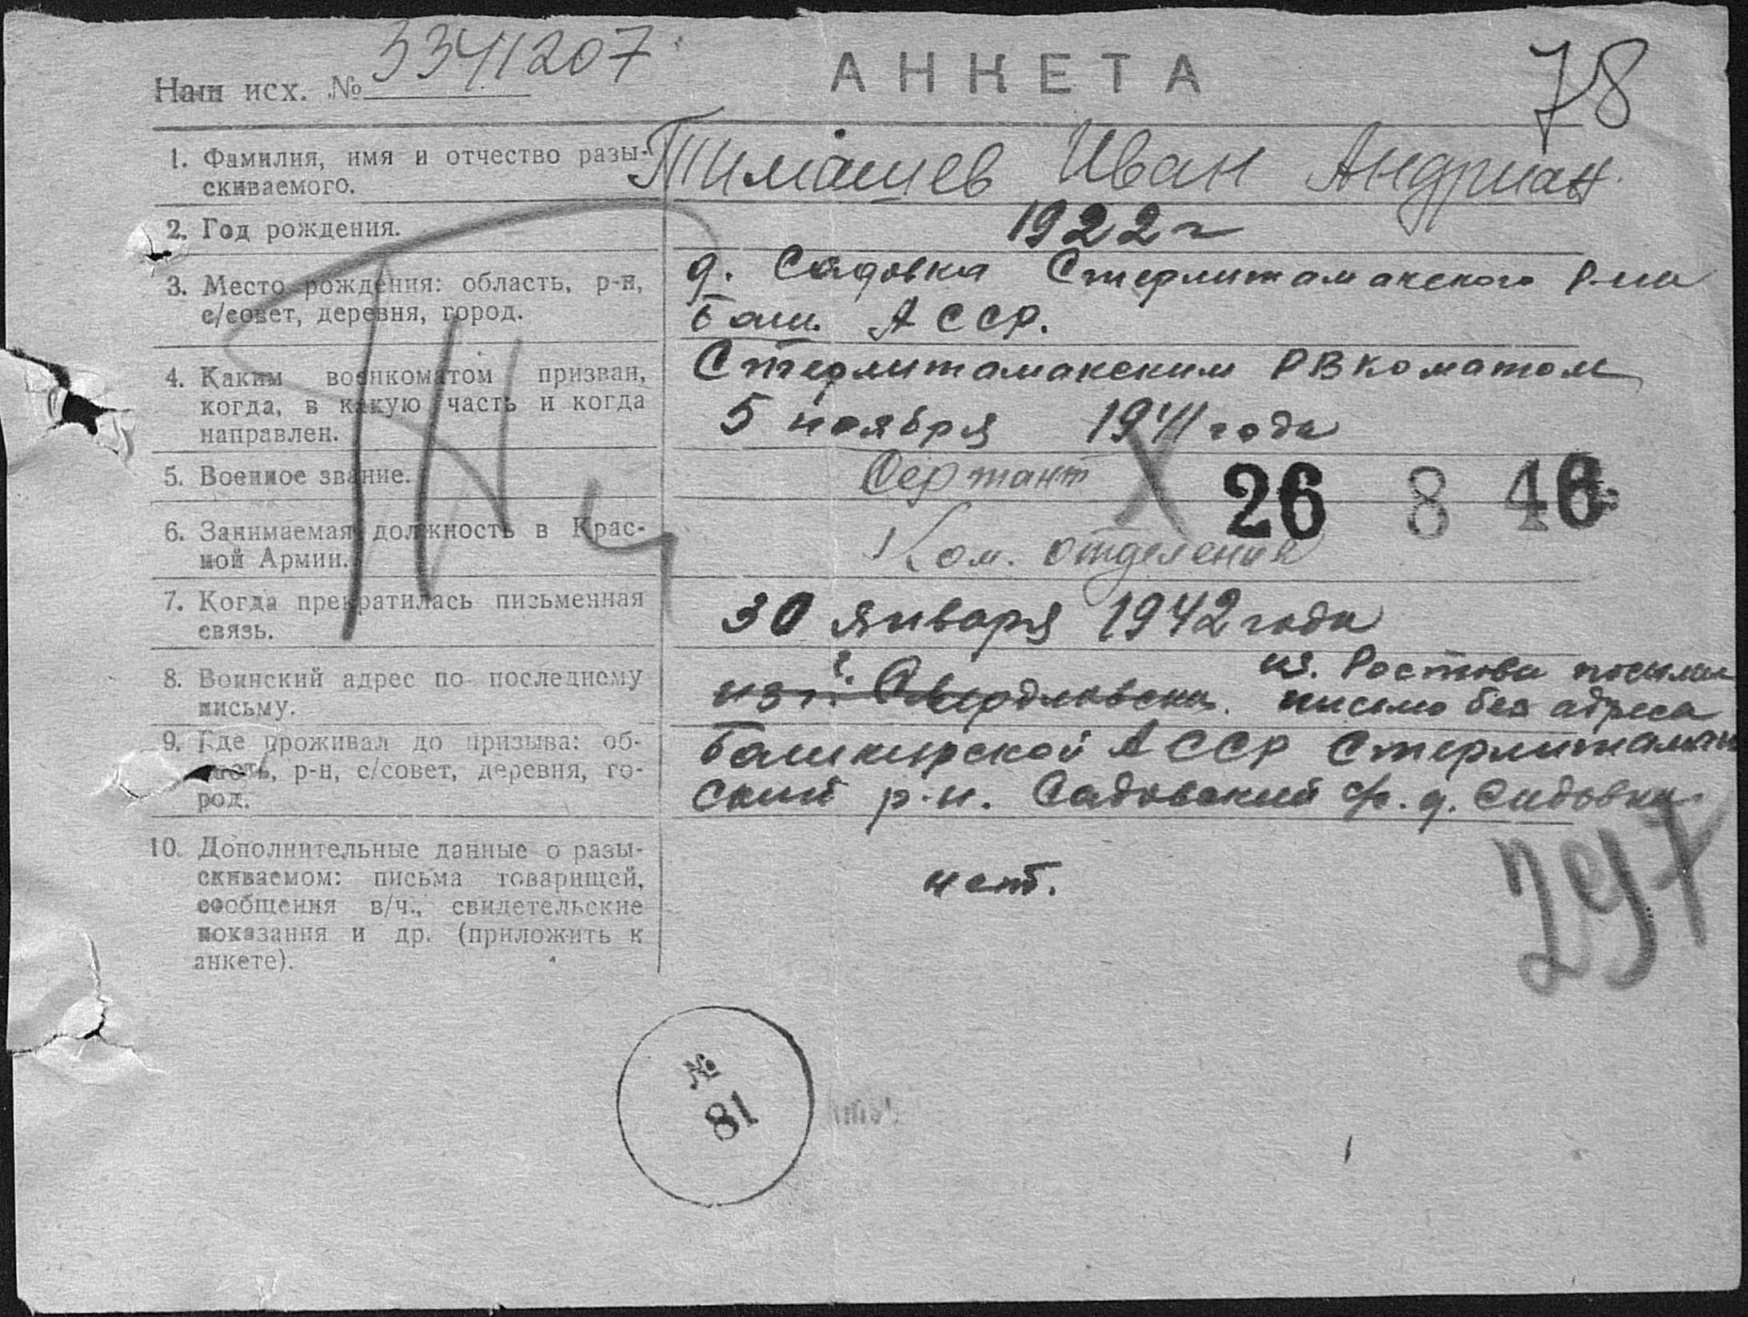 Наш исх. № 3341207
АНКЕТА
78
1. Фамилия, имя и отчество разы-
скиваемого.
Тимашев Иван Андриан.
2. Год рождения.
1922 г
3. Место рождения: область, р-н,
с/совет, деревня, город.
д. Садовка Стерлитамакского р-на
Баш. АССР.
4. Каким военкоматом призван,
когда, в какую часть и когда
направлен.
Стерлитамакским РВКоматом
5 ноября 1941 года
5. Военное звание.
Сержант
26 8 46
6. Занимаемая должность в Крас-
ной Армии.
Ком. отделения
7. Когда прекратилась письменная
связь.
30 января 1942 года
8. Воинский адрес по последнему
письму.
из г. Свердловска. из. Ростова посылал
письмо без адреса
9. Где проживал до призыва: об-
ласть, р-н, с/совет, деревня, го-
род.
Башкирской АССР Стерлитамак
ский р-н. Садовский с/с. д. Садовка
10. Дополнительные данные о разы-
скиваемом: письма товарищей,
сообщения в/ч., свидетельские
показания и др. (приложить к
анкете).
нет.
297
№
81